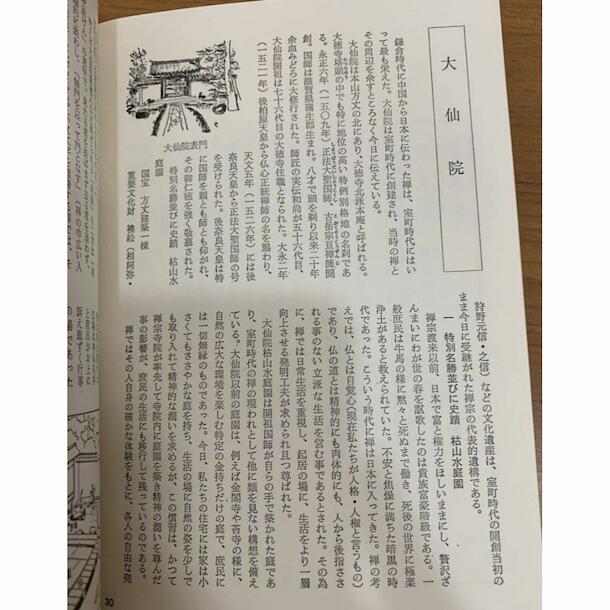 大仙院
鎌倉時代に中国から日本に伝わった禅は、室町時代にはい
って最も栄えた。大仙院は室町時代に創建され、当時の禅と
その周辺を余すところなく今日に伝えている。
大仙院は本山方丈の北にあり、大徳寺北派本庵と呼ばれる。
大徳寺塔頭の中でも特に地位の高い特例別格地の名刹であ
る。永正六年(一五〇九年)正法大聖国師、古岳宗亘禅師開
創。国師は滋賀県蒲生郡生まれ。八才で頭を剃り以来二十年
余血みどろに大修行された。師匠の実伝和尚が五十六代目、
大仙院開祖は七十六代目の大徳寺住職となられた。大永二年
(一五二一年)後柏原天皇から仏心正統禅師の名を賜わり、
天文五年(一五三六年)には後
奈良天皇から正法大聖国師の号
を受けられた。後奈良天皇は特
に国師を親とも師とも仰がれ、
その御仁徳を強く敬慕された。
特別名勝並びに史蹟 枯山水
庭園
国宝 方丈建築一棟
重要文化財 襖絵(相阿弥・
大仙院表門
狩野元信・之信)などの文化遺産は、室町時代の開創当初の
まま今日に受継がれた禅宗の代表的遺構である。
一 特別名勝並びに史蹟 枯山水庭園
禅宗渡来以前、日本で富と権力をほしいままにし、贅沢ざ
んまいにわが世の春を謳歌したのは貴族富豪階級である。一
般庶民は牛馬の様に黙々と死ぬまで働き、死後の世界に極楽
浄土があると教えられていた。不安と焦燥に満ちた暗黒の時
代であった。こういう時代に禅は日本に入ってきた。禅の考
えでは、仏とは自覚心(現在私たちが人格・人権と言うもの)
であり、仏の道とは精神的にも肉体的にも、人から後指ささ
れる事のない立派な生活を営む事であるとされた。その為
に、禅では日常生活を重視し、起居の場に、生活をより一層
向上させる発明工夫が求められ且つ尊ばれた。
大仙院枯山水庭園は開祖国師が自らの手で築かれた庭であ
り、室町時代の禅の現われとして他に類を見ない構想を備え
ている。大仙院以前の庭園は、例えば金閣寺や苔寺の様に、
自然の広大な環境を楽しむ特定の金持ちだけの庭で、庶民に
は一切無縁のものであった。今日、私たちの住宅には家は小
さくてもささやかな庭を持ち、生活の場に自然の姿を少しで
も取り入れて精神的な潤いを求めるが、この慣習は、かつて
禅宗寺院が率先して寺院内に庭園を築き精神の潤いを尊んだ
事の影響が、庶民の生活にも移行して残っているのである。
禅ではその人自身の確かな体験をもとに、各人の自由な発
30